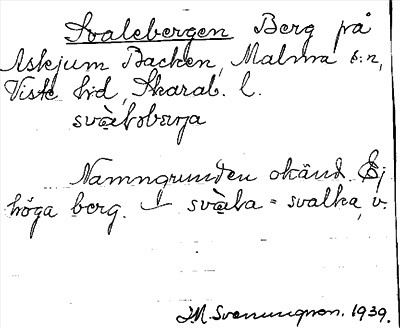 Svalebergen Berg på
Askjum Backen, Malma s:n,
Viste hd, Skarab. l.
svàləbærja
Namngrunden okänd. Ej
höga berg. – svàla = svalka, v.
J.M. Svenungson. 1939.